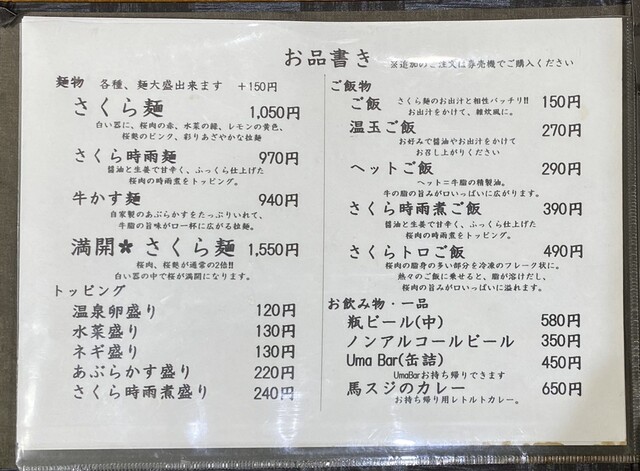 お品書き ※追加のご注文は券売機でご購入ください
麺物 各種、麺大盛出来ます +150円
さくら麺 1,050円
白い器に、桜肉の赤、水菜の緑、レモンの黄色、
桜麩のピンク、彩りあざやかな拉麺
さくら時雨麺 970円
醤油と生姜で甘辛く、ふっくら仕上げた
桜肉の時雨煮をトッピング。
牛かす麺 940円
自家製のあぶらかすをたっぷりいれて、
牛脂の旨味が口一杯に広がる拉麺。
満開✽さくら麺 1,550円
桜肉、桜麩が通常の2倍!!
白い器の中で桜が満開になります。
トッピング
温泉卵盛り 120円
水菜盛り 130円
ネギ盛り 130円
あぶらかす盛り 220円
さくら時雨煮盛り 240円
ご飯物
ご飯 さくら麺のお出汁と相性バッチリ!! 150円
お出汁をかけて、雑炊風に。
温玉ご飯 270円
お好みで醤油やお出汁をかけて
お召し上がりください
ヘットご飯 290円
ヘット=牛脂の精製油。
牛の脂の旨みが口いっぱいに広がります。
さくら時雨煮ご飯 390円
醤油と生姜で甘辛く、ふっくら仕上げた
桜肉の時雨煮をトッピング。
さくらトロご飯 490円
桜肉の脂身の多い部分を冷凍のフレーク状に。
熱々のご飯に乗せると、脂が溶けだし、
桜肉の旨みが口いっぱいに溢れます。
お飲み物・一品
瓶ビール(中) 580円
ノンアルコールビール 350円
Uma Bar(缶詰) 450円
UmaBarお持ち帰りできます
馬スジのカレー 650円
お持ち帰り用レトルトカレー。